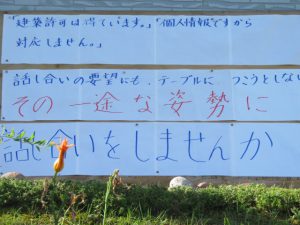 「建築許可は得ています。」「個人情報ですから
対応しません。」
話し合いの要望にも、テーブルに つこうとしない
その一途な姿勢に
話し合いをしませんか